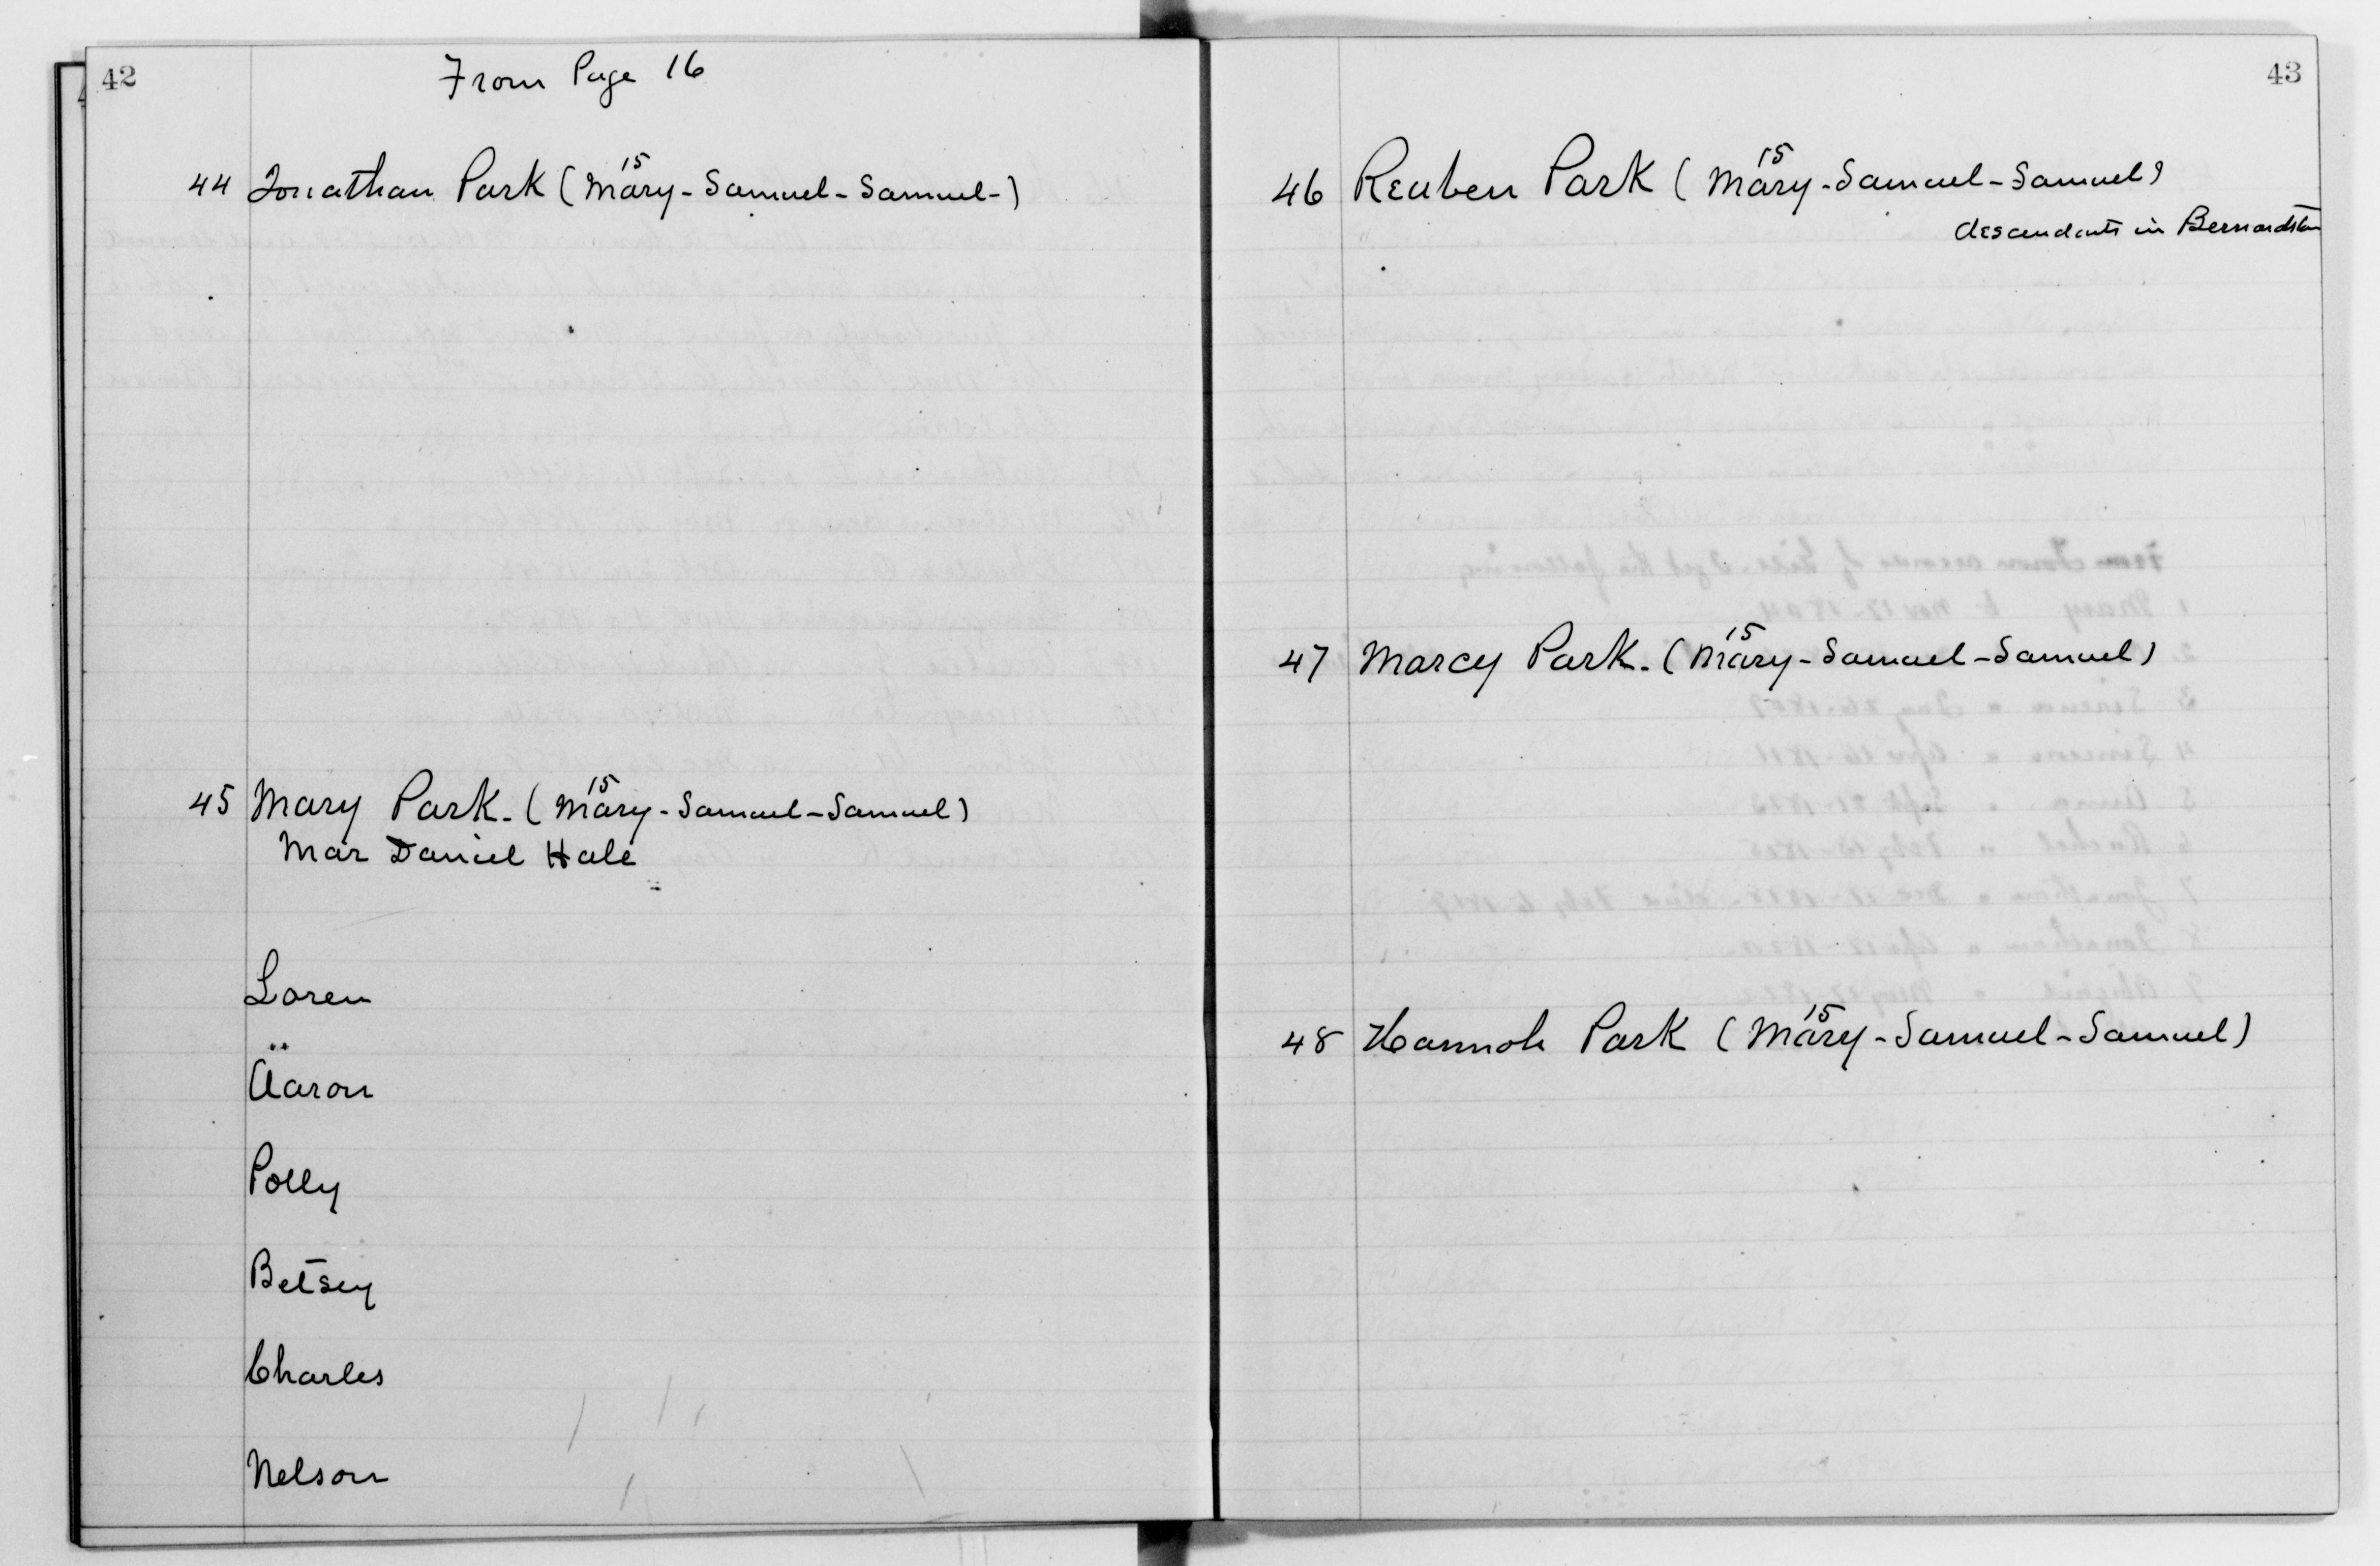 42
From Page 16
44 Jonathan Park (Mary15-Samuel-Samuel-)
45 Mary Park. (Mary15-Samuel-Samuel)
Mar Daniel Hale
Loren
Aaron
Polly
Betsey
Charles
Nelson
43
46 Reuben Park (Mary15-Samuel-Samuel)
descendants in Bernardston
47 Marcy Park. (Mary15-Samuel-Samuel)
48 Hannah Park (Mary15-Samuel-Samuel)